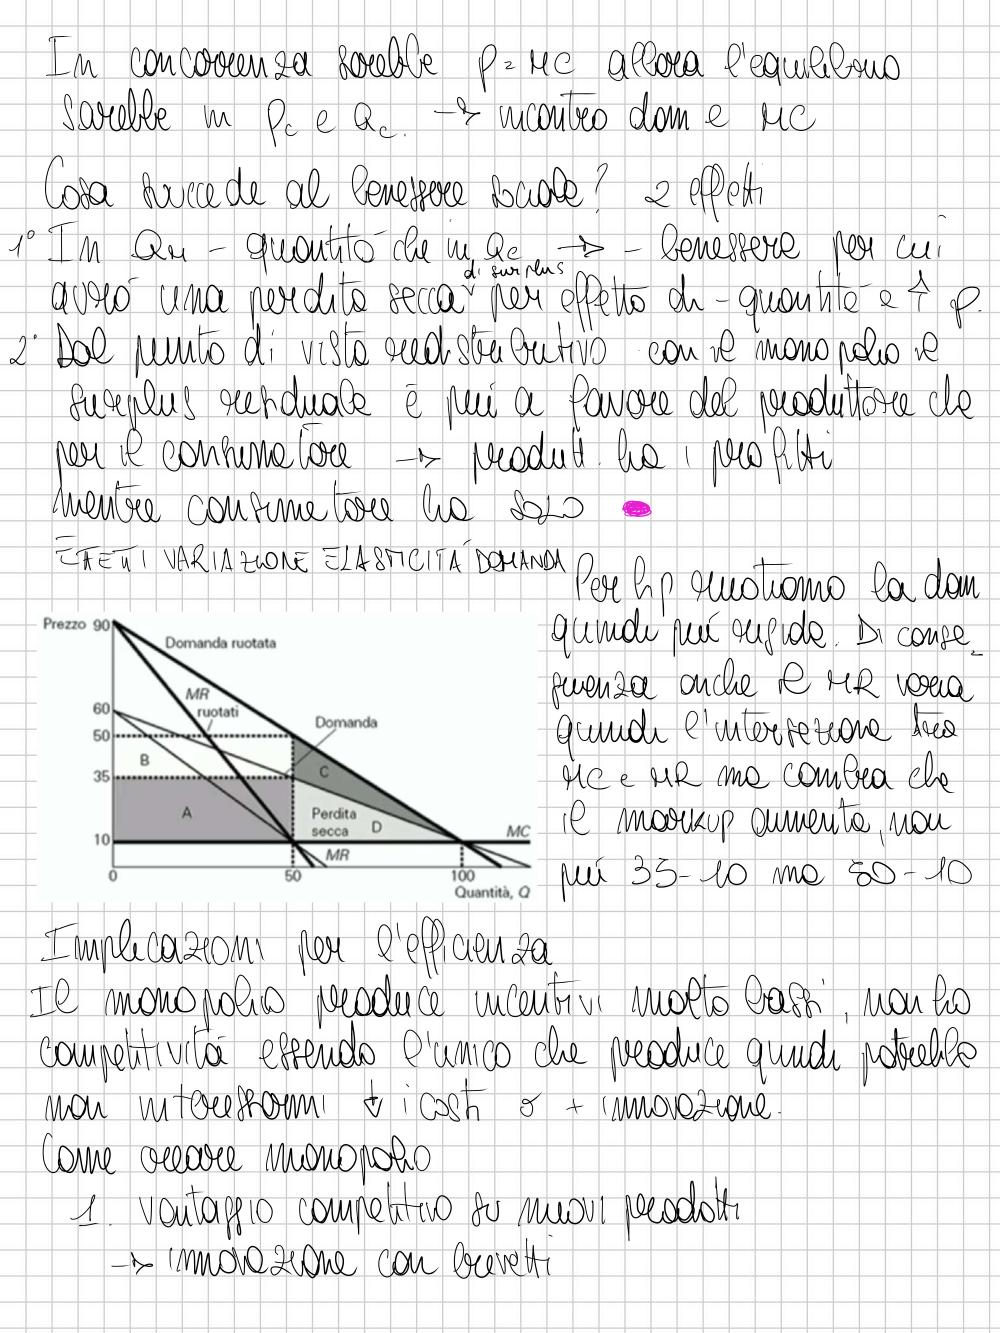 In concorrenza sarebbe p = MC allora l'equilibrio
sarebbe in Pc e Qc. → incontro dom e MC
Cosa succede al benessere sociale? 2 effetti
1° In QM - quantità che in Qc → - benessere per cui
di surplus
avrò una perdita secca ↓ per effetto di - quantità e ↑ p.
2° Dal punto di vista redistributivo con il monopolio il
surplus residuale è più a favore del produttore che
per il consumatore → produtt. ha i profitti
mentre consumatore ha SOLO
EFFETTI VARIAZIONE ELASTICITÀ DOMANDA
Per hp ruotiamo la dom
quindi più rigida. Di conse-
guenza anche il MR varia
quindi l'intersezione tra
MC e MR ma cambia che
il markup aumenta, non
più 35-10 ma 50-10
Prezzo 90
Domanda ruotata
MR
ruotati
60
Domanda
50
B
C
35
A
Perdita
secca
D
10
MC
MR
0
50
100
Quantità, Q
Implicazioni per l'efficienza
Il monopolio produce incentivi molto bassi, non ho
competitività essendo l'unico che produce quindi potrebbe
non interessarmi ↓ i costi o + innovazione.
Come creare monopolio
1. Vantaggio competitivo su nuovi prodotti
→ innovazione con brevetti